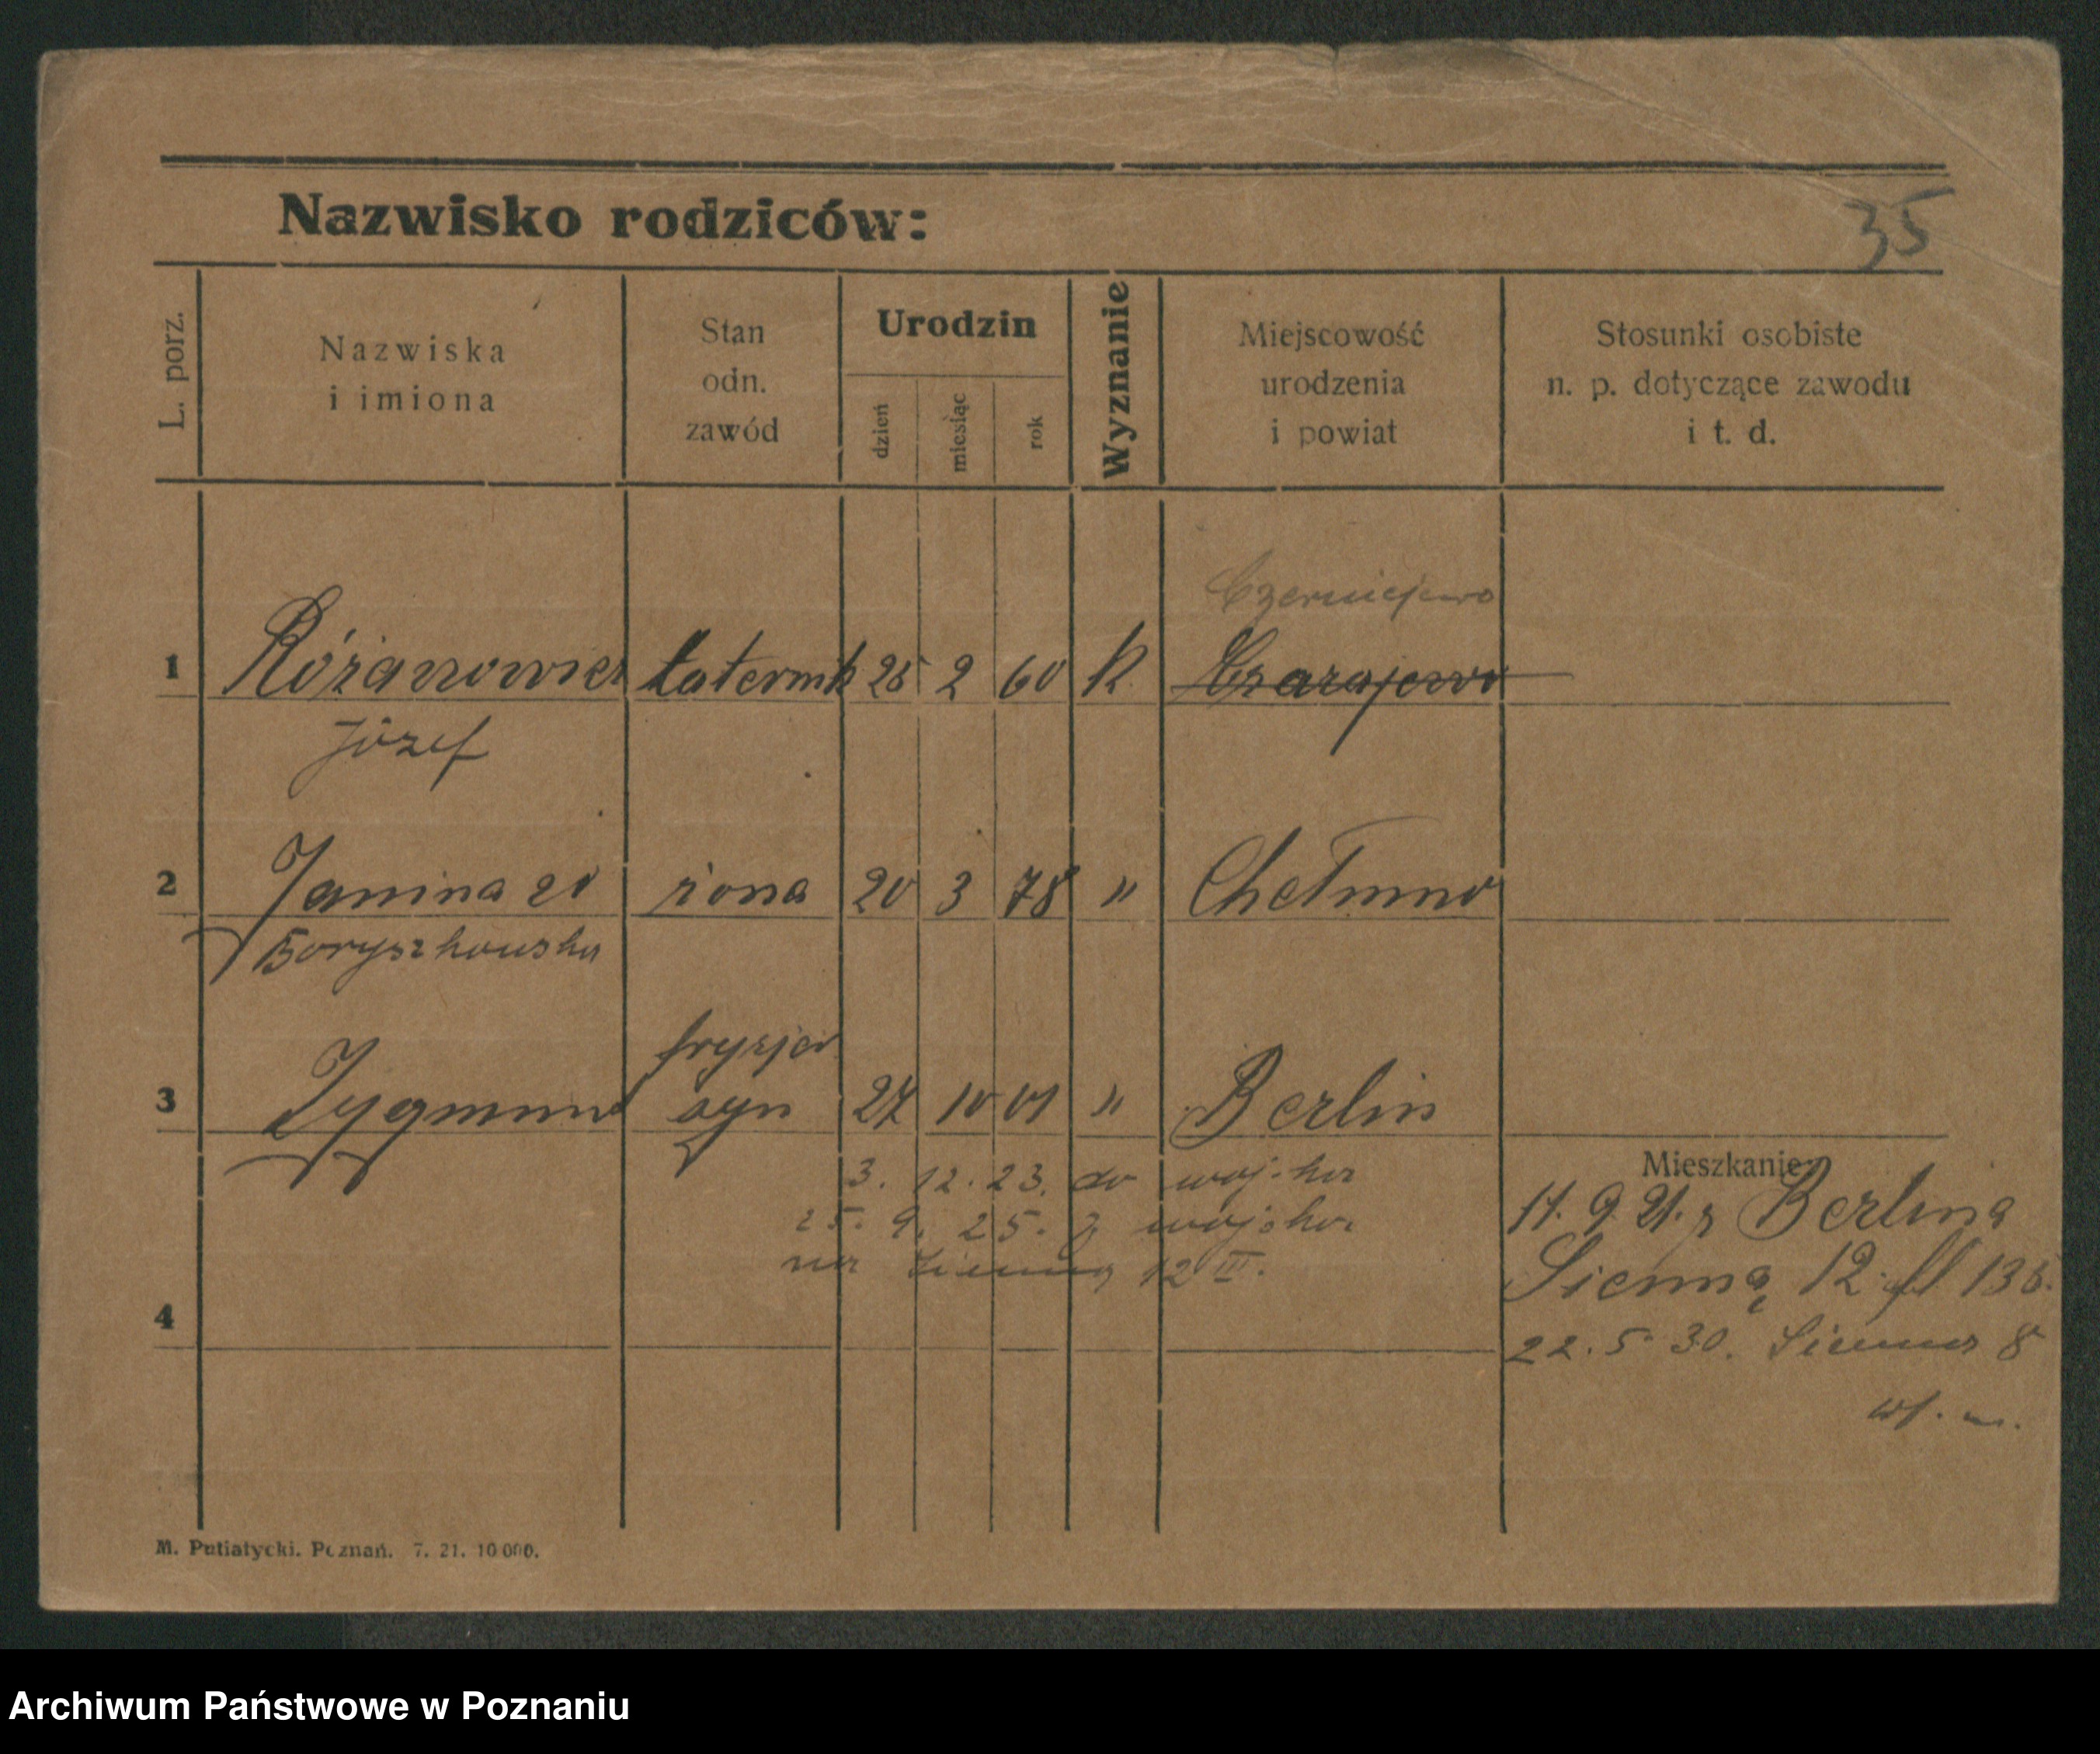 Nazwisko rodziców:
35
L. porz.
Nazwiska
i imiona
Stan
odn.
zawód
Urodzin
dzień
miesiąc
rok
Wyznanie
Miejscowość
urodzenia
i powiat
Stosunki osobiste
n. p. dotyczące zawodu
i t. d.
Czerniejewo
1 Różanowicz 2 60 K
Józef
2 Janina zd żona 20 3 78 " Chełmno
Boryszkowska
fryzjer
3 Zygmunt syn 27 10 01 " Berlin
Mieszkanie:
3. 12. 23. do wojska
25. 9. 25. z wojska
na Sienną 12 III.
9. 21. z Berlina
Sienna 12
22. 5. 30. Sienna 8
4
M. Putiatycki. Poznań. 7. 21. 10 000.
Archiwum Państwowe w Poznaniu